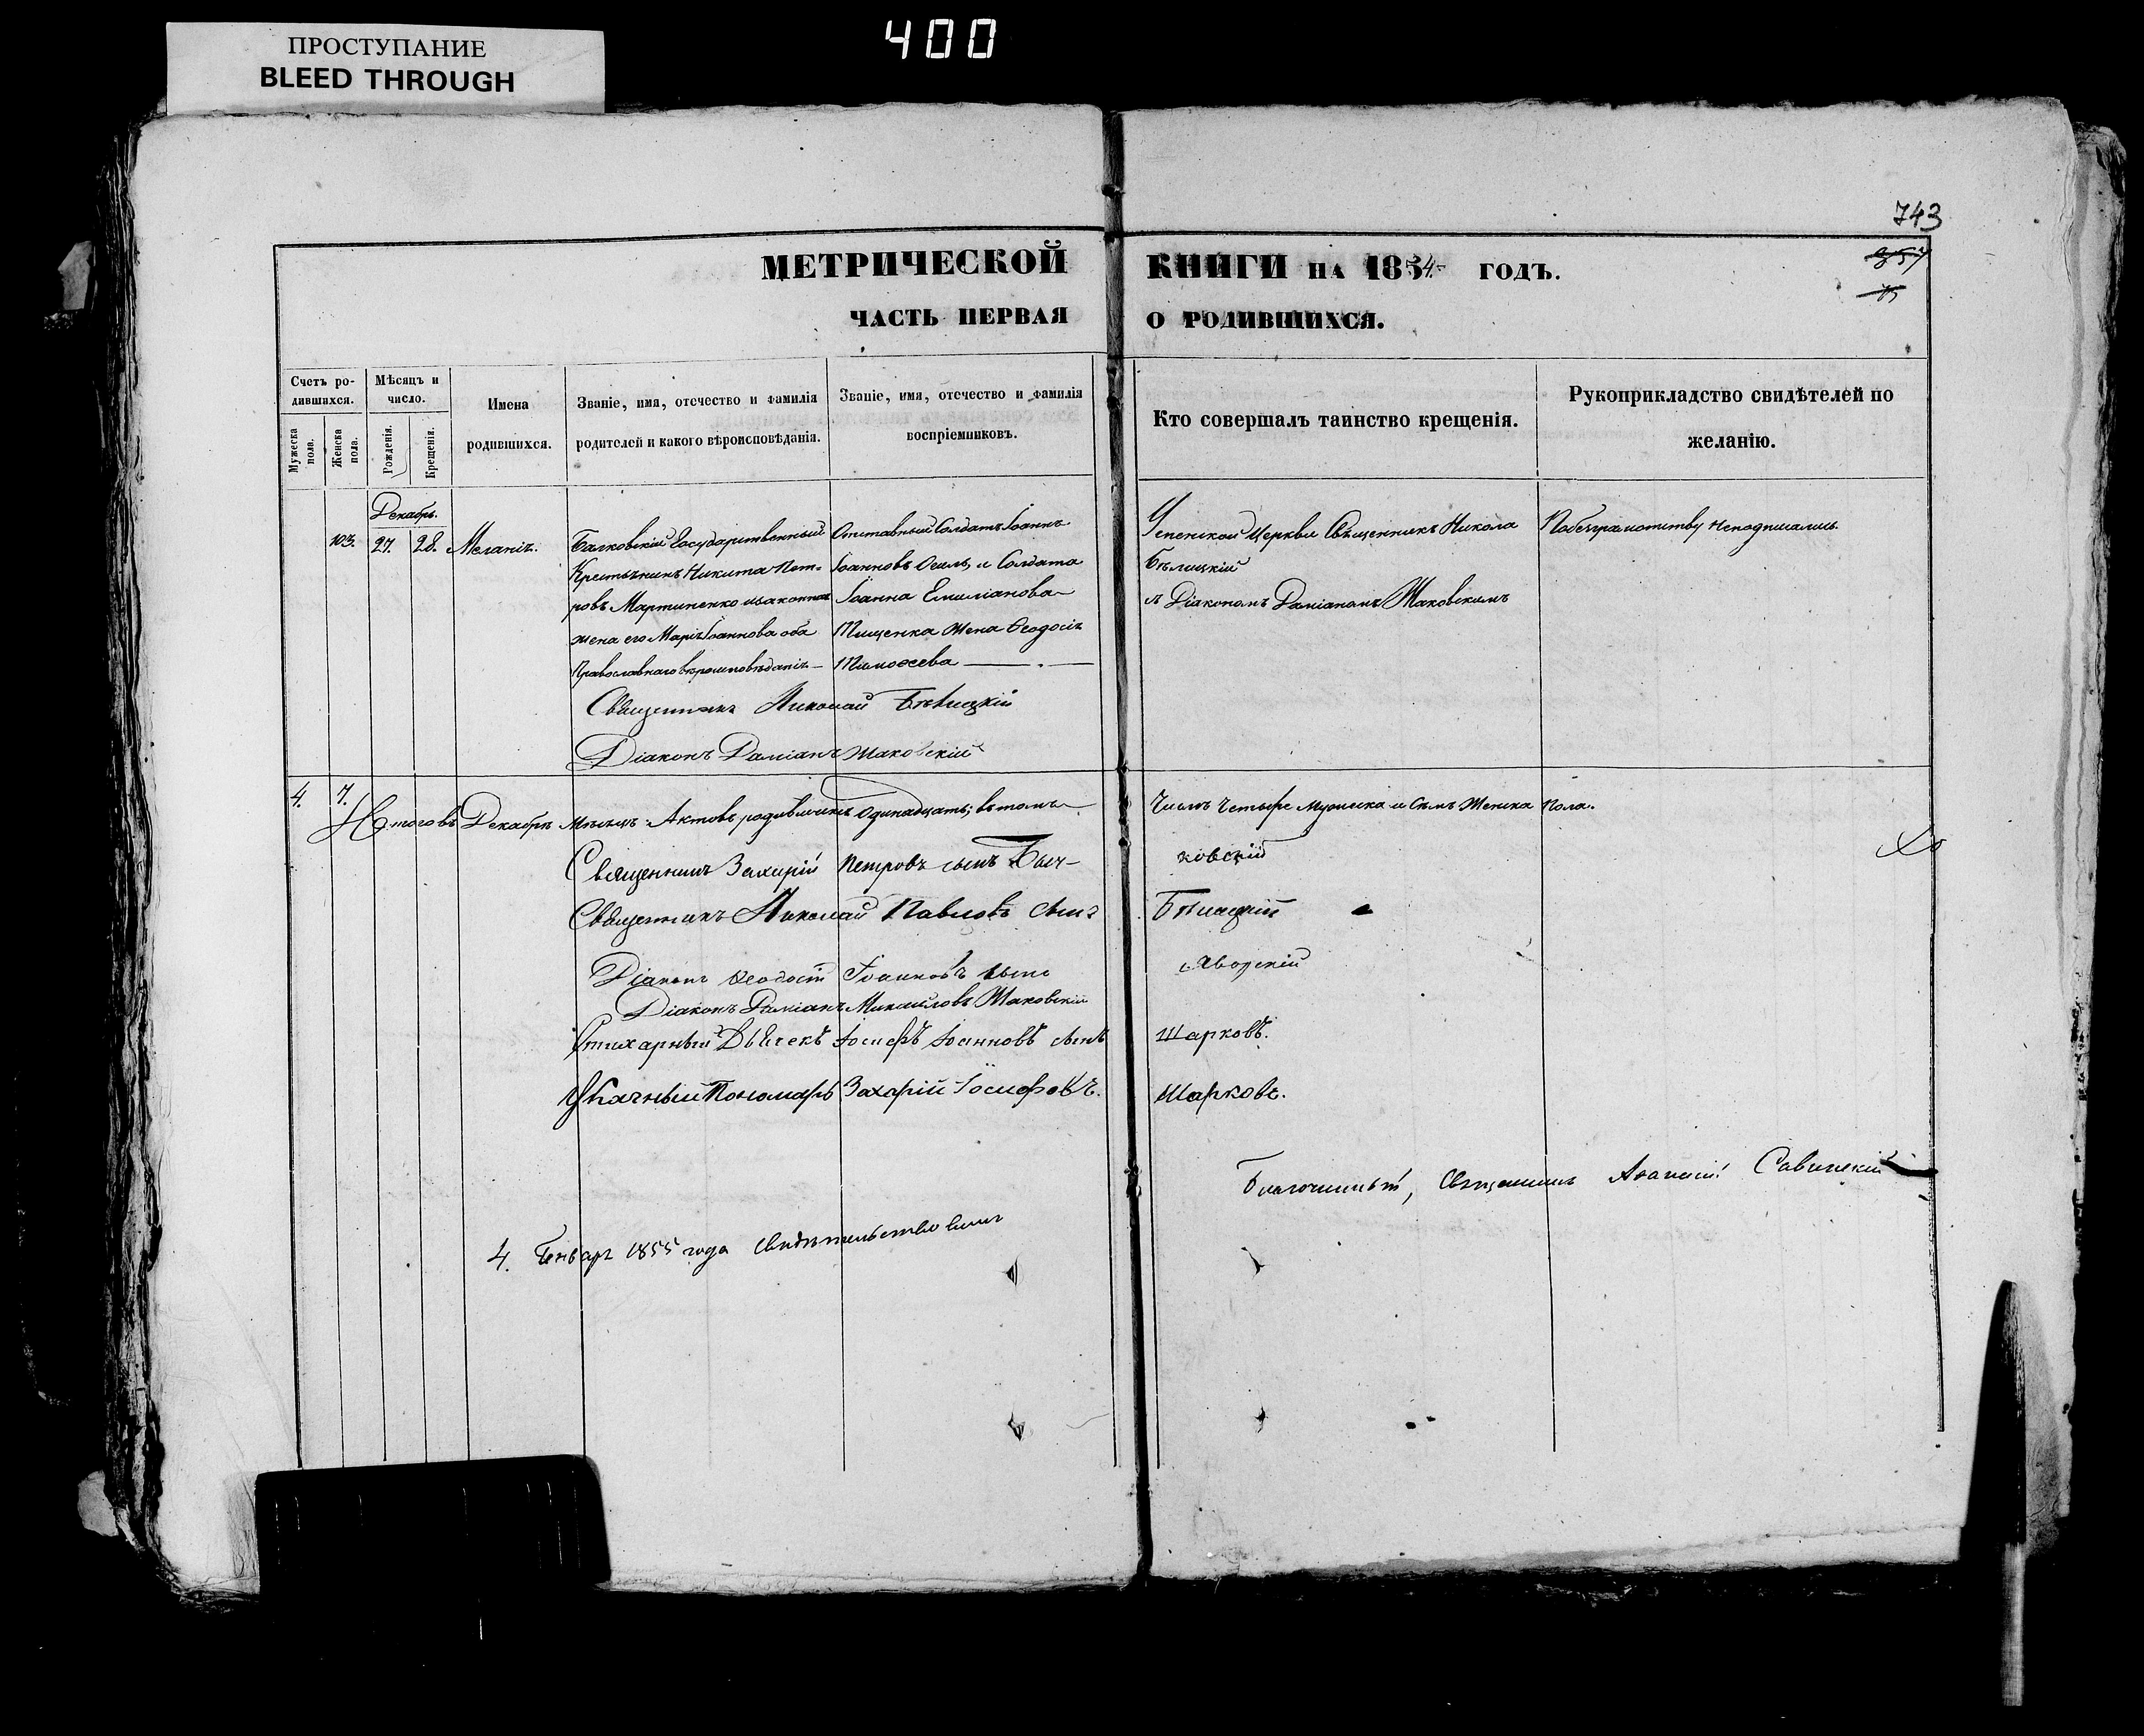 ПРОСТУПАНИЕ
BLEED THROUGH
400
743
МЕТРИЧЕСКОЙ КНИГИ НА 1854 ГОДЪ.
357
ЧАСТЬ ПЕРВАЯ О РОДИВШИХСЯ.
Счетъ ро-
дившихся.
Мѣсяцъ и
число.
Имена
родившихся.
Званіе, имя, отечество и фамилія
родителей и какого вѣроисповѣданія.
Званіе, имя, отечество и фамилія
воспріемниковъ.
Кто совершалъ таинство крещенія.
Рукоприкладство свидѣтелей по
желанію.
Мужеска
пола.
Женска
пола.
Рожденія.
Крещенія.
Декабрь.
103. 27. 28. Меланія.
Государственный
Крестьянинъ Никита Пет-
ровъ Мартиненко изаконная
жена его Марія Іоаннова оба
Православнаго вѣроисповѣданія
Отставный Солдатъ Іоаннъ
Іоанновъ и Солдата
Іоанна Емиліанова
Тищенка Жена Ѳеодосія
Тимоѳеева
Успенской Церкви Священникъ Никола
Бѣлицкій
съ Діакономъ Даміаномъ Жаковскимъ
Побезграмотству Неподписались.
Священникъ Николай Бѣлицкій
Діаконъ Даміанъ Жаковскій
4. 7.
Итого въ Декабрѣ Мѣсяцѣ Актовъ родившихъ Одинадцать; втомъ Числѣ Четыре Мужеска и Семь Женска Пола.
Священникъ Захарій Петровъ сынъ ковскій
Священникъ Николай Павловъ сынъ Бѣлицкій
Діаконъ Ѳеодосій Іоанновъ сынъ Яворскій
Діаконъ Даміанъ Михаиловъ Жаковскій
Стихарный Дьячекъ Іосифъ Іоанновъ сынъ Шарковъ.
Указный Пономарь Захарій Іосифовъ. Шарковъ.
Благочинный, Священникъ Аѳанасій Савинскій
4. Генваря 1855 года свидѣтельствовалъ